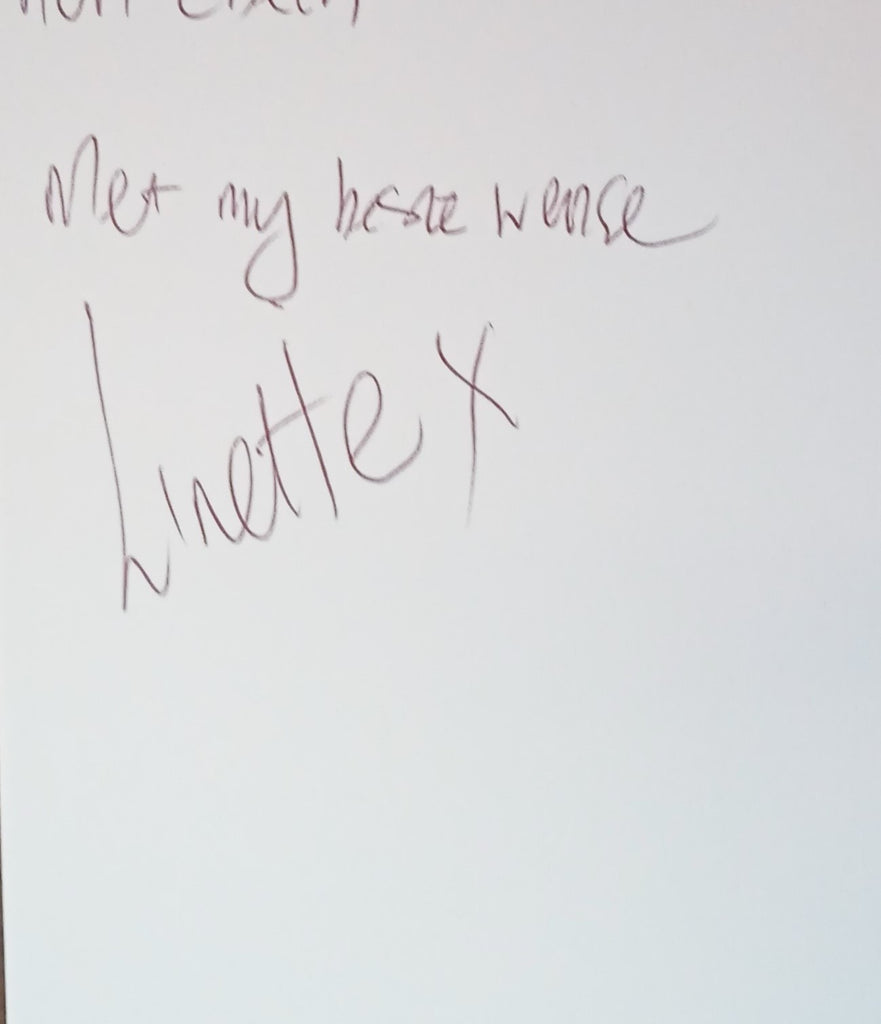 Met my beste wense
Linette x